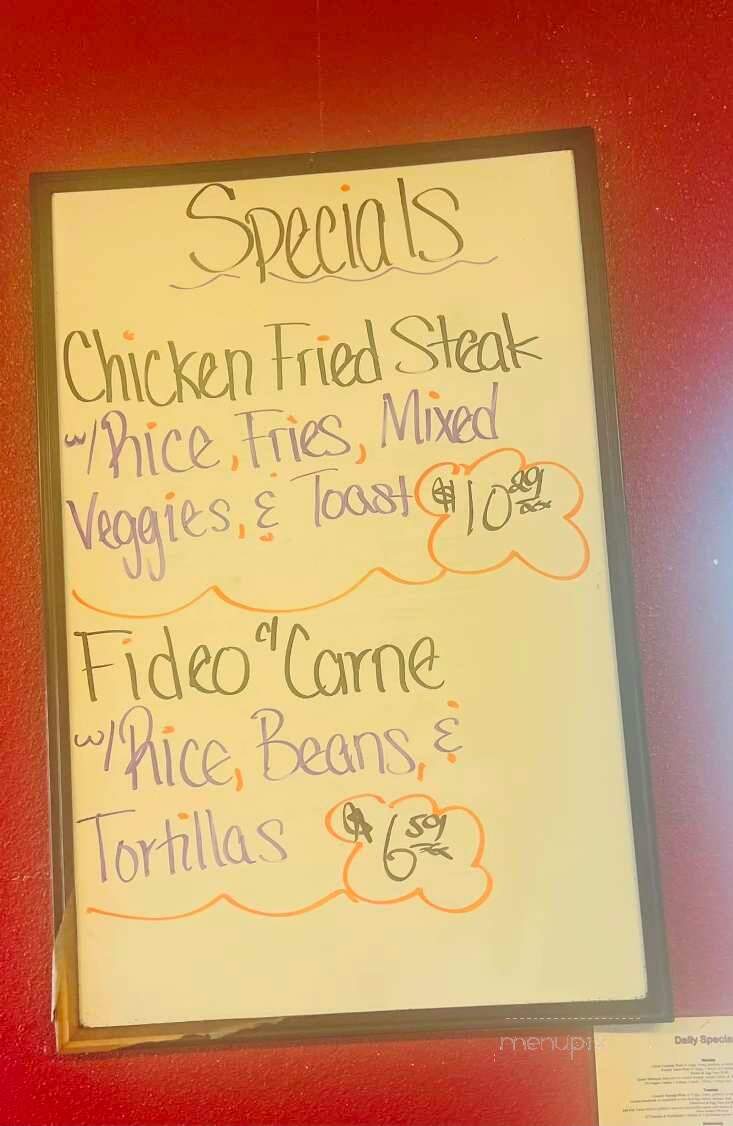 Specials
Chicken Fried Steak
w/ Rice, Fries, Mixed
Veggies, & Toast $10.89
Fideo c/ Carne
w/ Rice, Beans, &
Tortillas $6.59
menupix
Daily Specia